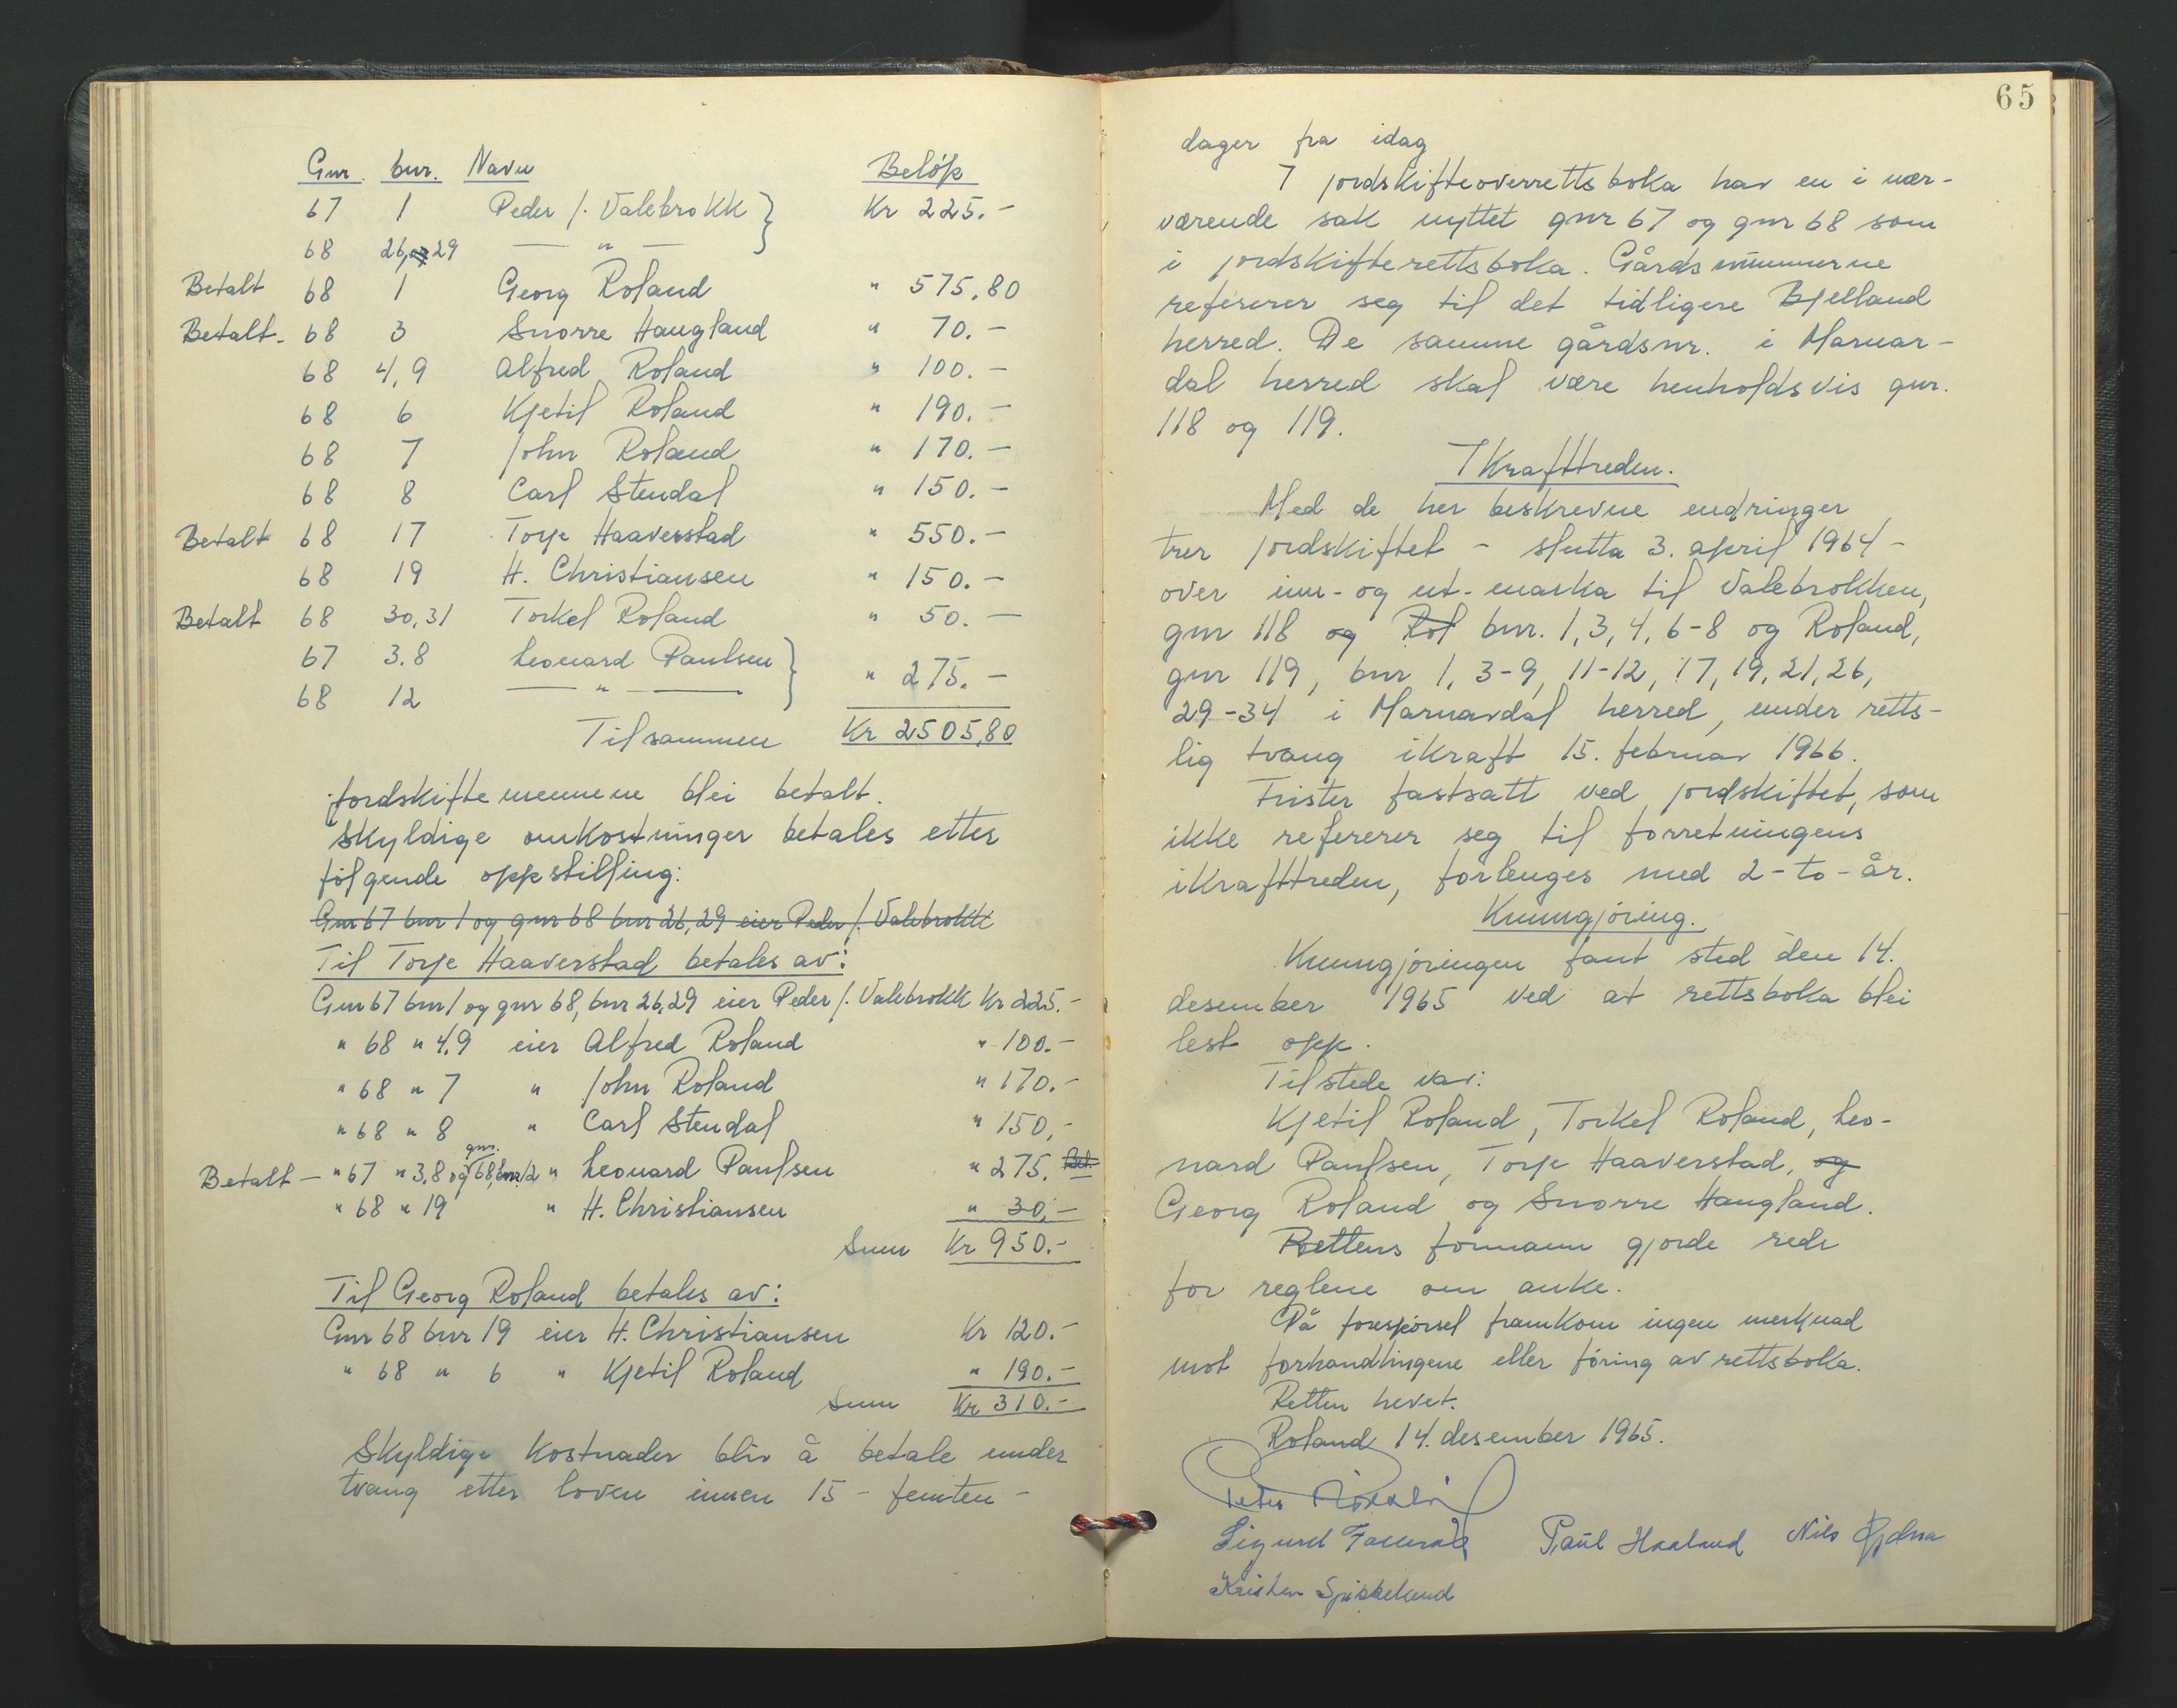 Gnr. bnr. Navn Beløp
67 1 Peder J. Valebrokk } Kr 225.-
68 26, ~~og~~ 29 — " — }
Betalt 68 1 Georg Roland " 575,80
Betalt - 68 3 Snorre Haugland " 70.-
68 4,9 Alfred Roland " 100.-
68 6 Kjetil Roland " 190.-
68 7 John Roland " 170.-
68 8 Carl Stendal " 150.-
Betalt 68 17 Torje Haaverstad " 550.-
68 19 H. Christiansen " 150.-
Betalt 68 30,31 Torkel Roland " 50.-
67 3.8 Leonard Paulsen } " 275.-
68 12 — " — }
Tilsammen Kr 2505,80
Jordskiftemennene blei betalt.
Skyldige omkostninger betales etter
følgende oppstilling:
~~Gnr 67 bnr 1 og gnr 68 bnr 26,29 eier Peder J. Valebrokk~~
Til Torje Haaverstad betales av:
Gnr 67 bnr 1 og gnr 68, bnr 26,29 eier Peder J. Valebrokk Kr 225.-
" 68 " 4,9 eier Alfred Roland " 100.-
" 68 " 7 " John Roland " 170.-
" 68 " 8 " Carl Stendal " 150,-
Betalt — " 67 " 3,8 og gnr. 68, bnr. 12 " Leonard Paulsen " 275. ~~Bet.~~
" 68 " 19 " H. Christiansen " 30,-
Sum Kr 950.-
Til Georg Roland betales av:
Gnr 68 bnr 19 eier H. Christiansen Kr 120.-
" 68 " 6 " Kjetil Roland " 190.-
Sum Kr 310.-
Skyldige kostnader blir å betale under
tvang etter loven innen 15 - femten -
65
dager fra idag
I jordskifteoverrettsboka har en i nær-
værende sak nyttet gnr 67 og gnr 68 som
i jordskifterettsboka. Gårdsnummerne
refererer seg til det tidligere Bjelland
herred. De samme gårdsnr. i Marnar-
dal herred skal være henholdsvis gnr.
118 og 119.
Ikrafttreden.
Med de her beskrevne endringer
trer jordskiftet - slutta 3. april 1964 -
over inn- og ut-marka til Valebrokken,
gnr 118 ~~og Rol~~ bnr. 1, 3, 4, 6-8 og Roland,
gnr 119, bnr 1, 3-9, 11-12, 17, 19, 21, 26,
29-34 i Marnardal herred, under retts-
lig tvang ikraft 15. februar 1966.
Frister fastsatt ved jordskiftet, som
ikke refererer seg til forretningens
ikrafttreden, forlenges med 2 - to - år.
Kunngjøring.
Kunngjøringen fant sted den 14.
desember 1965 ved at rettsboka blei
lest opp.
Tilstede var:
Kjetil Roland, Torkel Roland, Leo-
nard Paulsen, Torje Haaverstad, ~~og~~
Georg Roland og Snorre Haugland.
Rettens formann gjorde rede
for reglene om anke.
På forespørsel framkom ingen merknad
mot forhandlingene eller føring av rettsboka.
Retten hevet.
Roland 14. desember 1965.
Peter
Sigurd Paul Haaland Nils
Kristen Spikkeland